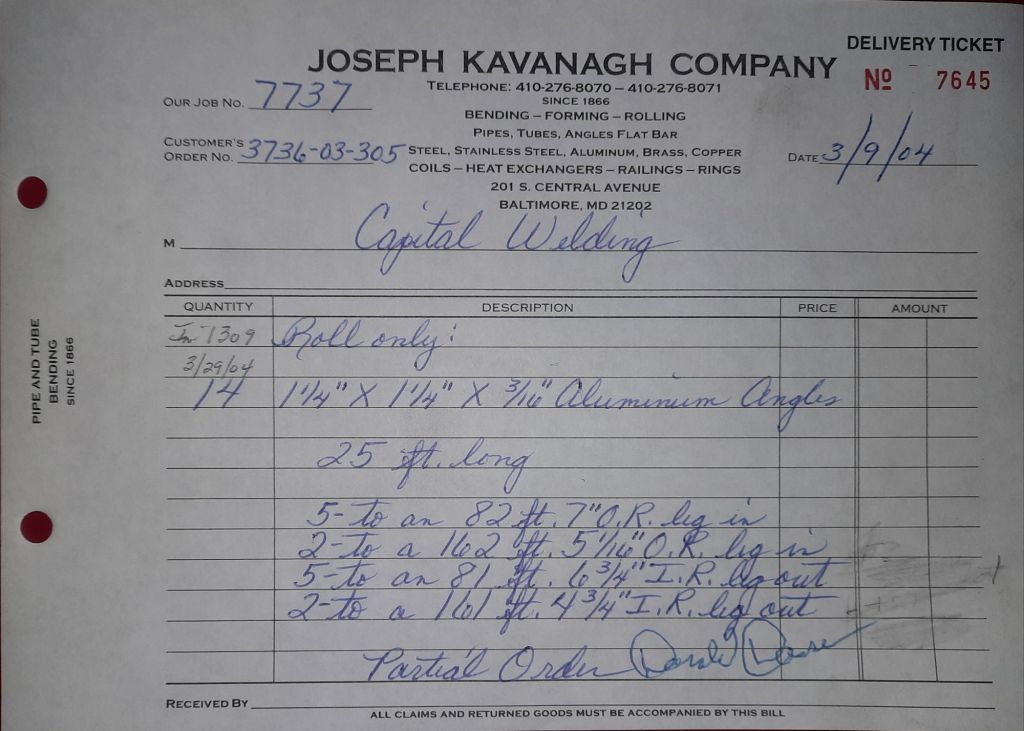 DELIVERY TICKET
JOSEPH KAVANAGH COMPANY
Nº 7645
TELEPHONE: 410-276-8070 – 410-276-8071
OUR JOB NO. 7737
SINCE 1866
BENDING – FORMING – ROLLING
PIPES, TUBES, ANGLES FLAT BAR
CUSTOMER'S
ORDER NO. 3736-03-305
STEEL, STAINLESS STEEL, ALUMINUM, BRASS, COPPER
DATE 3/9/04
COILS – HEAT EXCHANGERS – RAILINGS – RINGS
201 S. CENTRAL AVENUE
BALTIMORE, MD 21202
M Capital Welding
ADDRESS
QUANTITY DESCRIPTION PRICE AMOUNT
1309 Roll only:
3/29/04
14 1 1/4" X 1 1/4" X 3/16" Aluminum Angles
25 ft. long
5-to an 82 ft. 7" O.R. leg in
2-to a 162 ft. 5 1/16" O.R. leg in
5-to an 81 ft. 6 3/4" I.R. leg out
2-to a 161 ft. 4 3/4" I.R. leg out
Partial Order
RECEIVED BY
ALL CLAIMS AND RETURNED GOODS MUST BE ACCOMPANIED BY THIS BILL
PIPE AND TUBE
BENDING
SINCE 1866